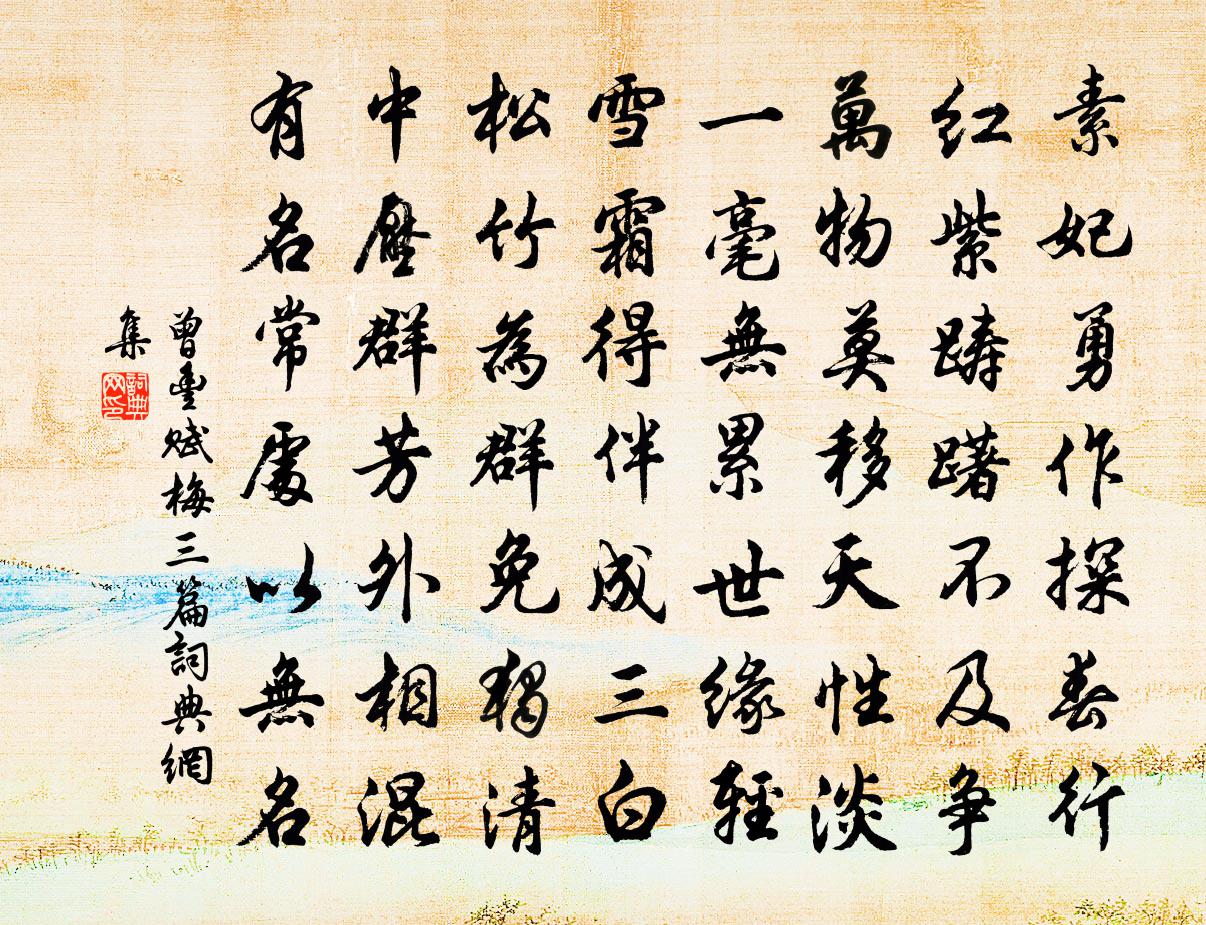 素妃勇作探春行
紅紫躊躇不及争
萬物莫移天性淡
一毫無累世緣輕
雪霜得伴成三白
松竹為群免獨清
中壓群芳外相混
有名常處以無名
曾豐賦梅三篇詞典網
集
詞典
网印